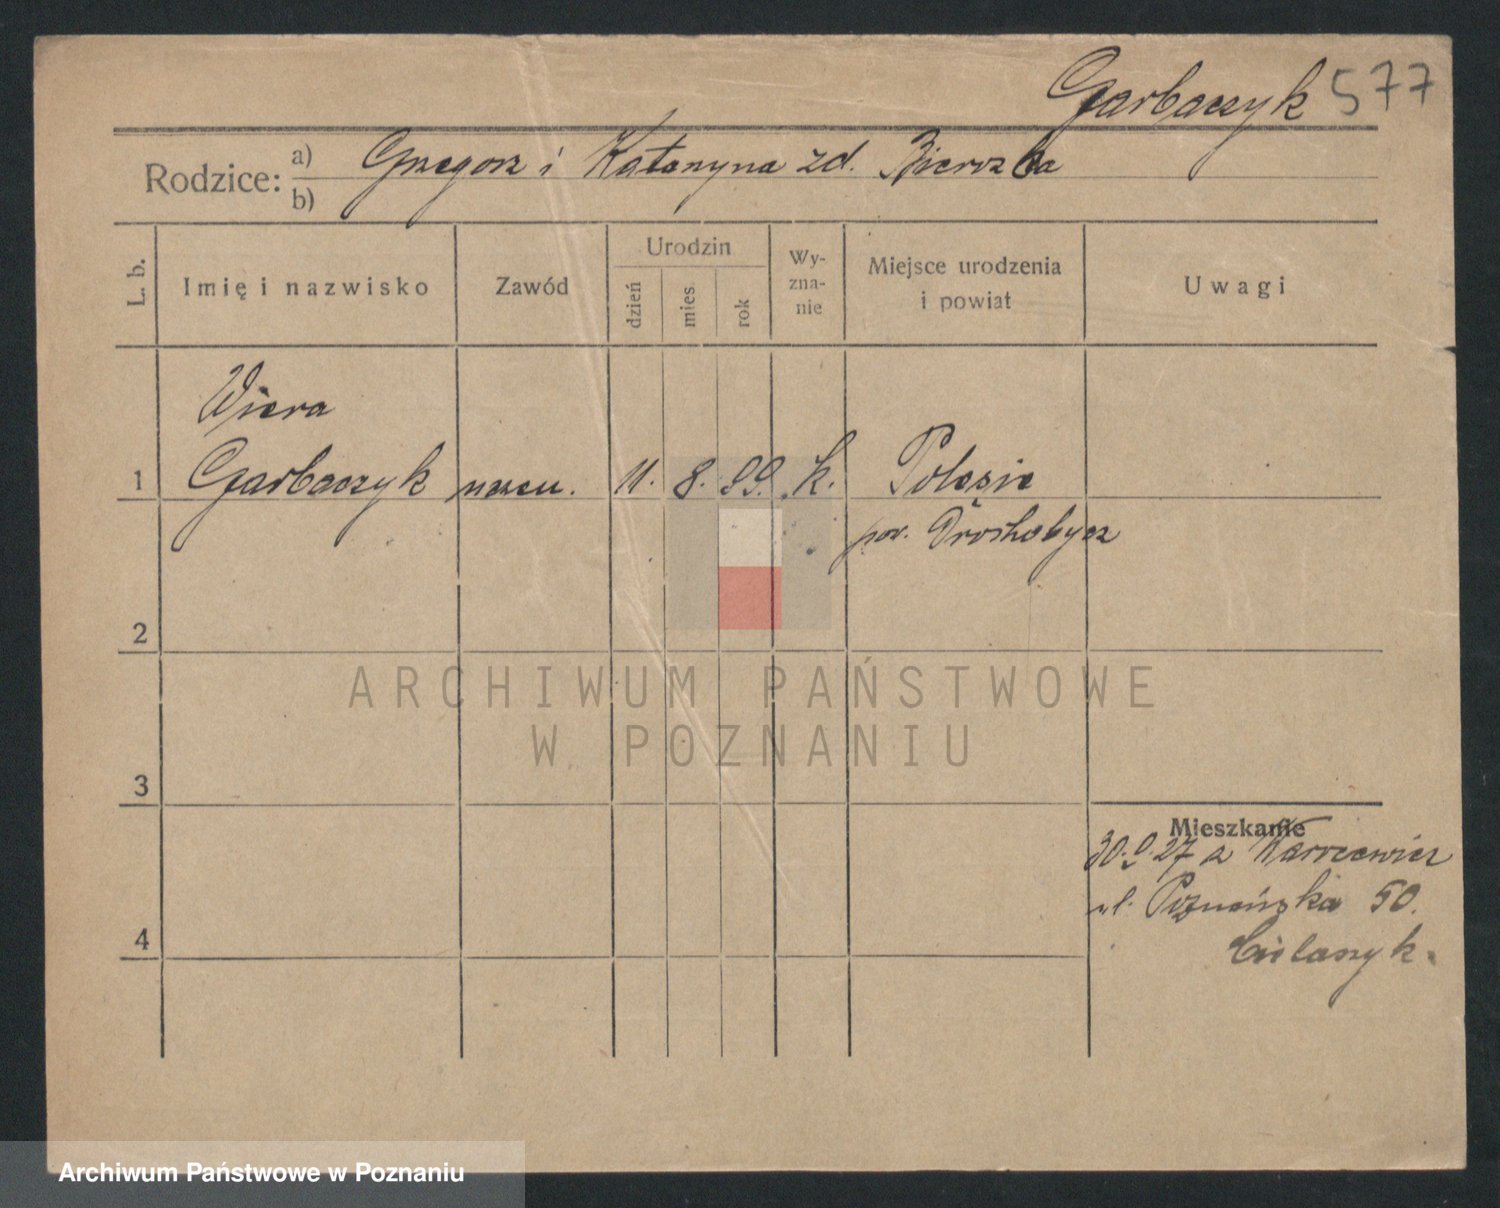 Garbaczyk 577
Rodzice: a) Grzegorz i Katarzyna zd.
b)
L. b.
Imię i nazwisko
Zawód
Urodzin
dzień
mies.
rok
Wy-
zna-
nie
Miejsce urodzenia
i powiat
Uwagi
Wiera
1 Garbaczyk naucz. 11. 8. 99. k. Polesie
pow. Drohobycz
2
ARCHIWUM PAŃSTWOWE
W POZNANIU
3
Mieszkanie
30.9.27 z
ul. Poznańska 50.
4
Archiwum Państwowe w Poznaniu